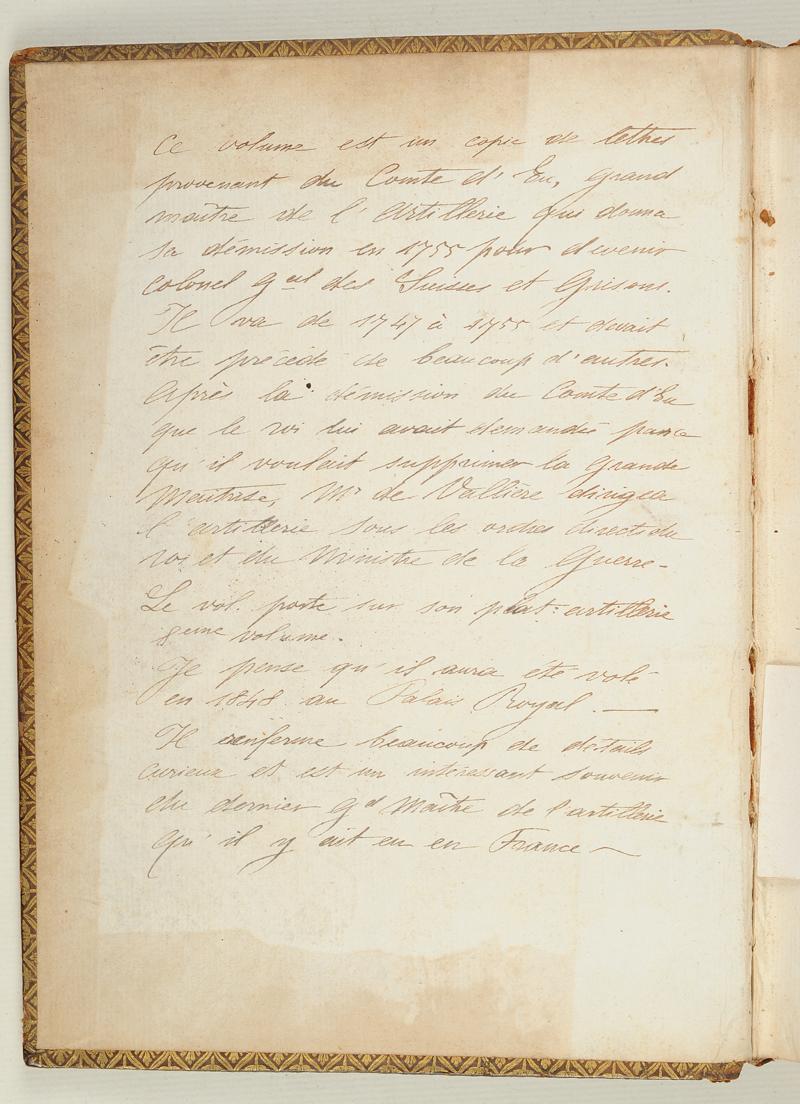 Ce volume est un copie de lettres
provenant du Comte d'Eu, grand
maître de l'artillerie qui donna
sa démission en 1755 pour devenir
colonel gal des Suisses et Grisons.
Il va de 1747 à 1755 et devait
être précédé de beaucoup d'autres.
Après la démission du Comte d'Eu
que le roi lui avait demandée parce
qu'il voulait supprimer la grande
Maîtrise, Mr de Vallière dirigea
l'artillerie sous les ordres directs du
roi et du Ministre de la Guerre -
Le vol. porte sur son plat : artillerie
8eme volume.
Je pense qu'il aura été volé
en 1848 au Palais Royal. —
Il renferme beaucoup de détails
curieux et est un intéressant souvenir
du dernier gd Maître de l'artillerie
qu'il y ait eu en France ~